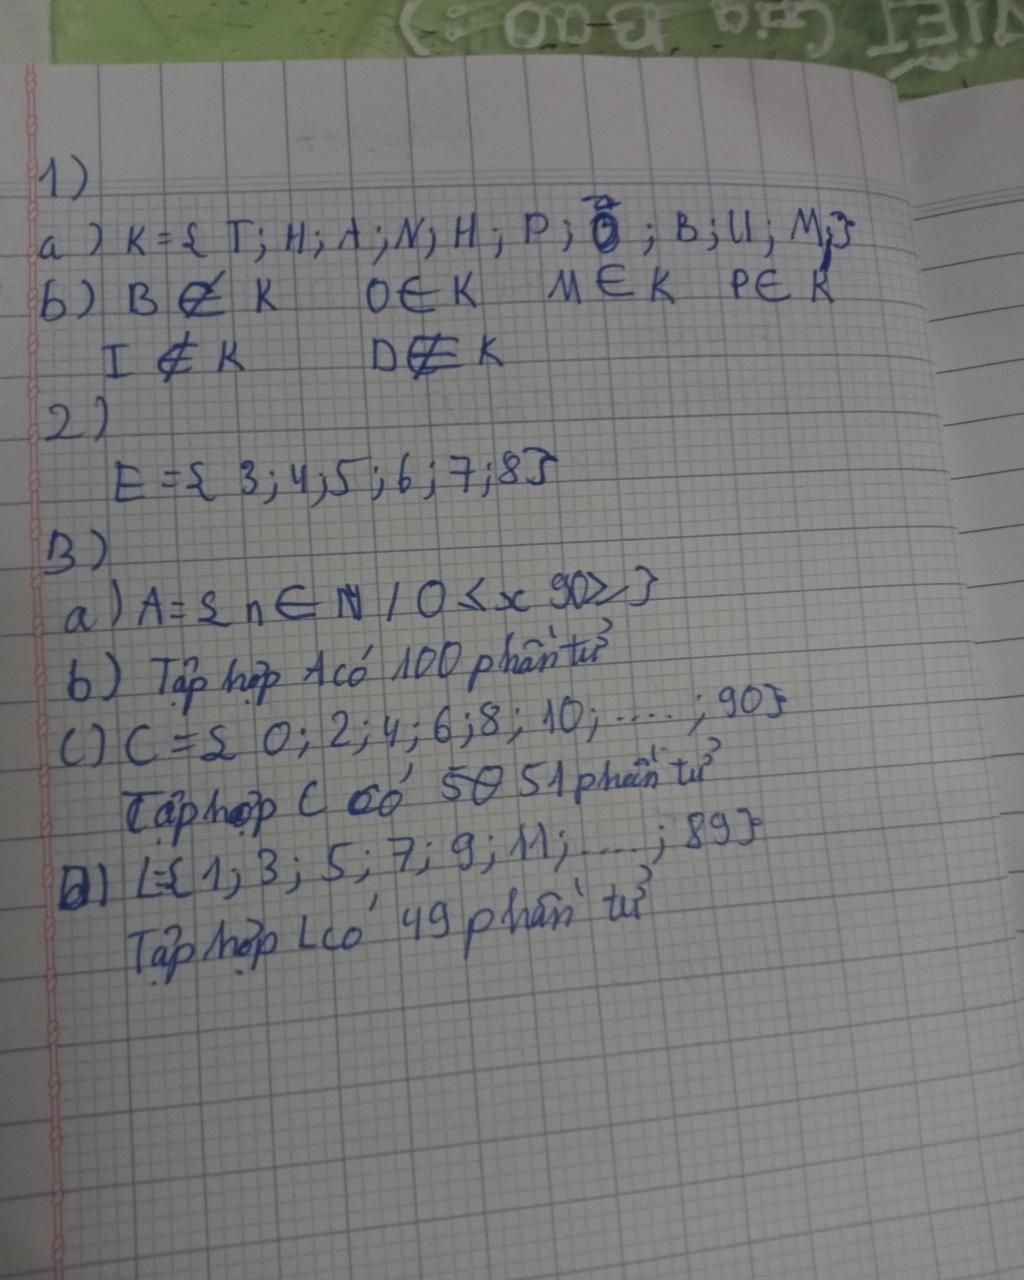 VIẾT Của BaO :)
1)
a) K = { T; H; A; N; H; P; Ố; B; U; M; }
b) B ∉ K O ∈ K M ∈ K P ∈ K
I ∉ K D ∉ K
2)
E = { 3; 4; 5; 6; 7; 8 }
B)
a) A = { n ∈ N / 0 ≤ x 90 ≥ }
b) Tập hợp A có 100 phần tử
c) C = { 0; 2; 4; 6; 8; 10; ....; 90 }
Tập hợp C có 50 51 phần tử
D) L = { 1; 3; 5; 7; 9; 11; ....; 89 }
Tập hợp L có 49 phần tử